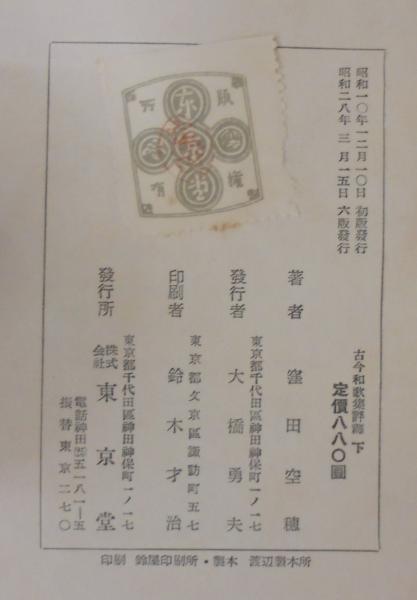 昭和一〇年一二月一〇日 初版發行
昭和二八年 三 月一五日 六版發行
版權
所有
東京堂
古今和歌集評釋 下
定價八八〇圓
著者 窪田空穂
東京都千代田區神田神保町一ノ一七
發行者 大橋勇夫
東京都文京區諏訪町五七
印刷者 鈴木才治
東京都千代田區神田神保町一ノ一七
發行所 株式會社 東京堂
電話神田五一八一―五
振替東京二七〇
印刷 鈴屋印刷所・製本 渡辺製本所